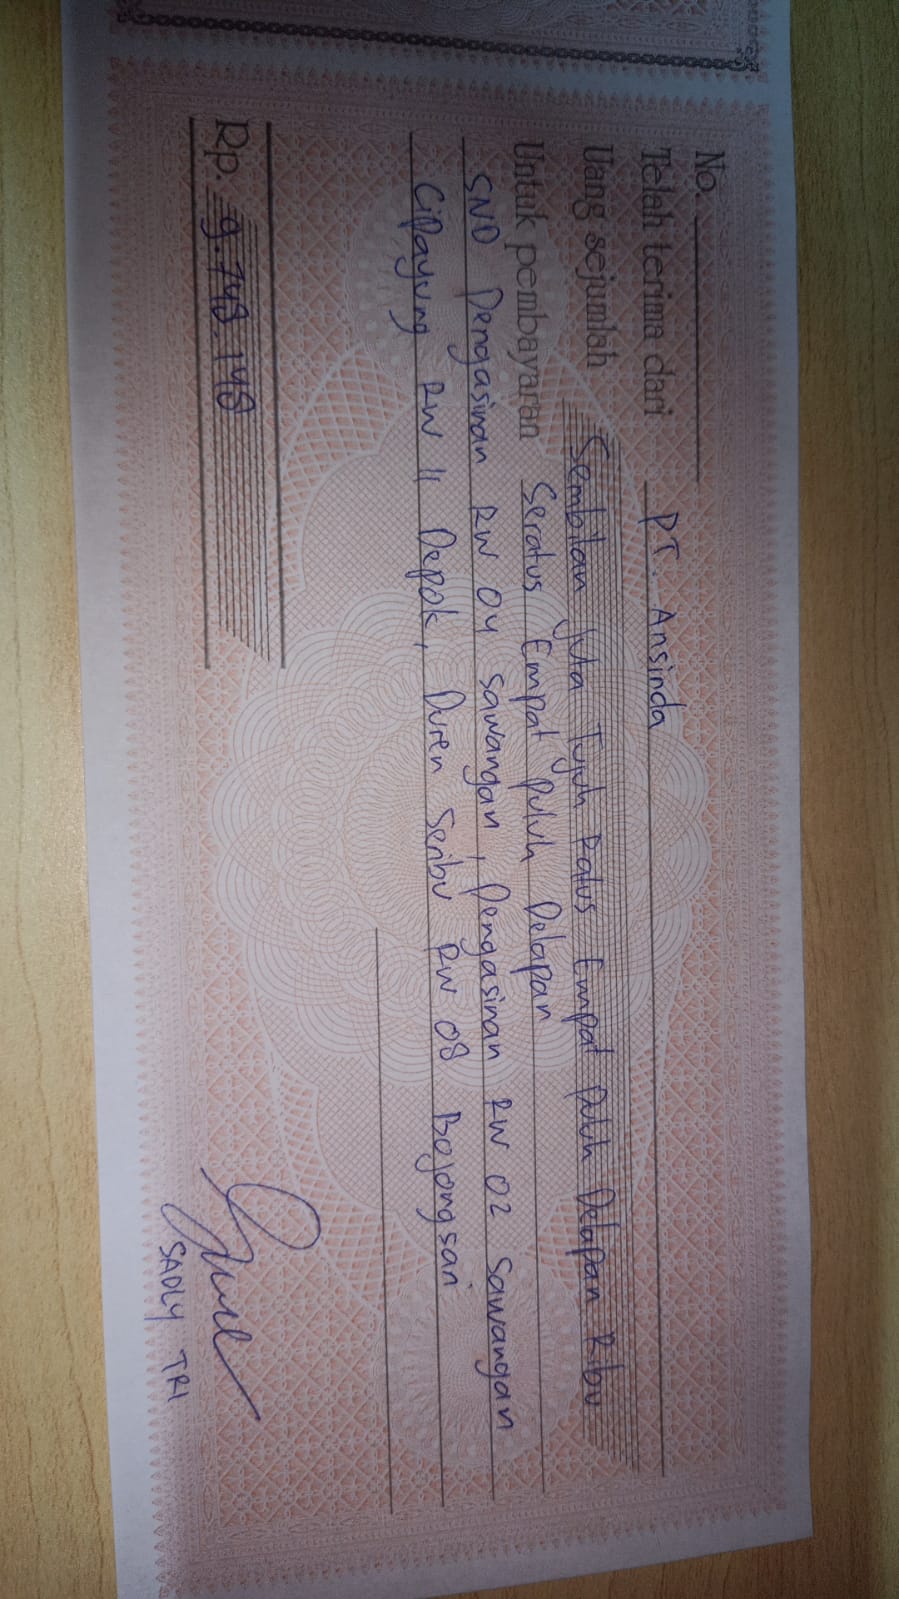 No.
Telah terima dari PT. Ansinda
Uang sejumlah Sembilan Juta Tujuh Ratus Empat Puluh Delapan Ribu
Untuk pembayaran Seratus Empat Puluh Delapan
SND Pengasinan RW 04 Sawangan, Pengasinan RW 02 Sawangan
Cipayung RW 11 Depok, Duren Seribu RW 08 Bojongsari
Rp. 9.748.148
SADLY TRI